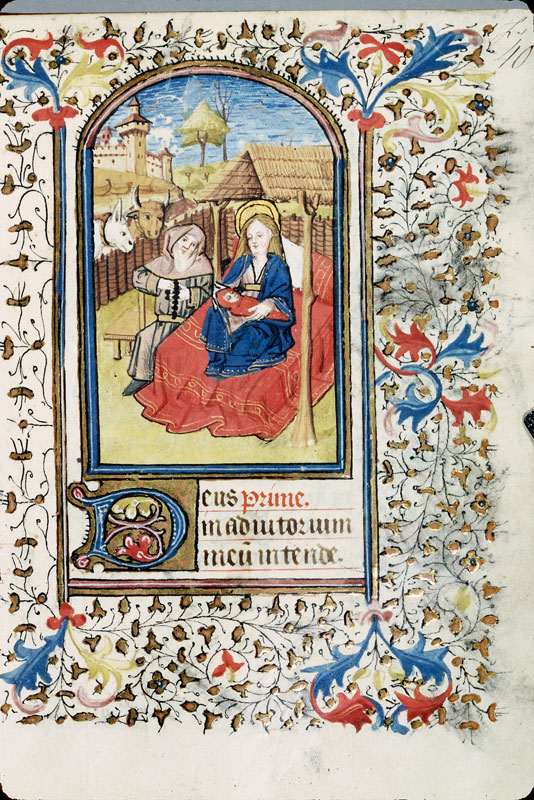 Deus Prime.
in adiutorium
meū intende.